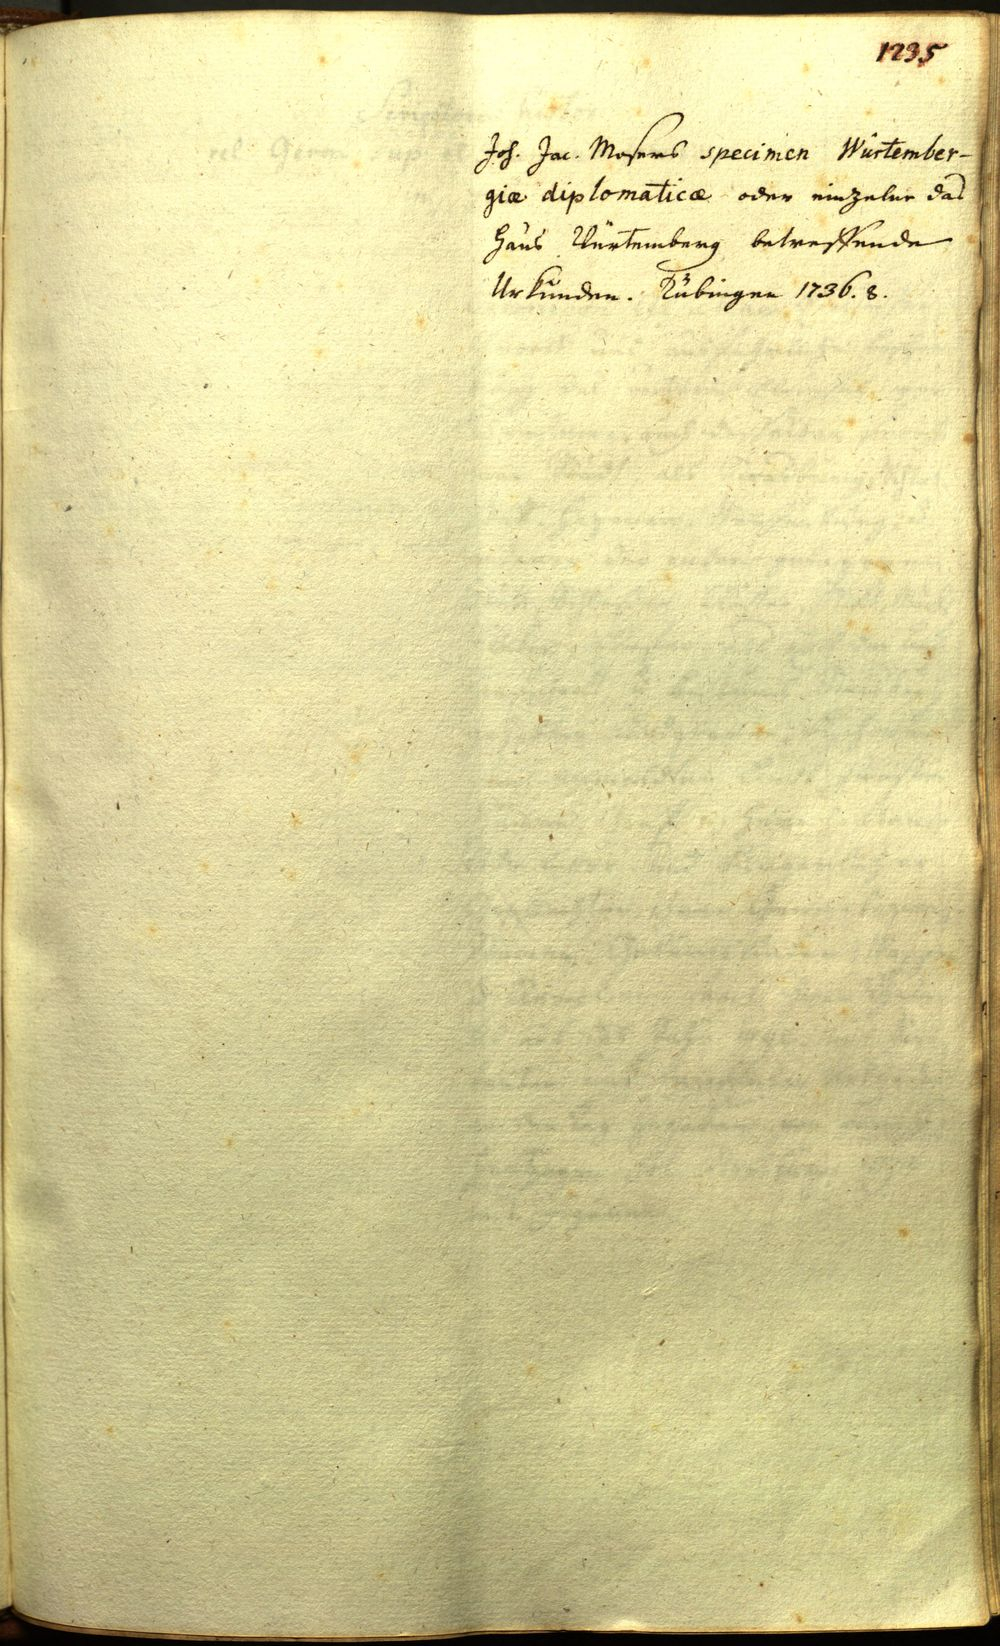 1235
Joh. Jac. Mosers specimen Würtember-
giæ diplomaticæ oder einzelne das
Haus Würtemberg betreffende
Urkunden. Tübingen 1736. 8.